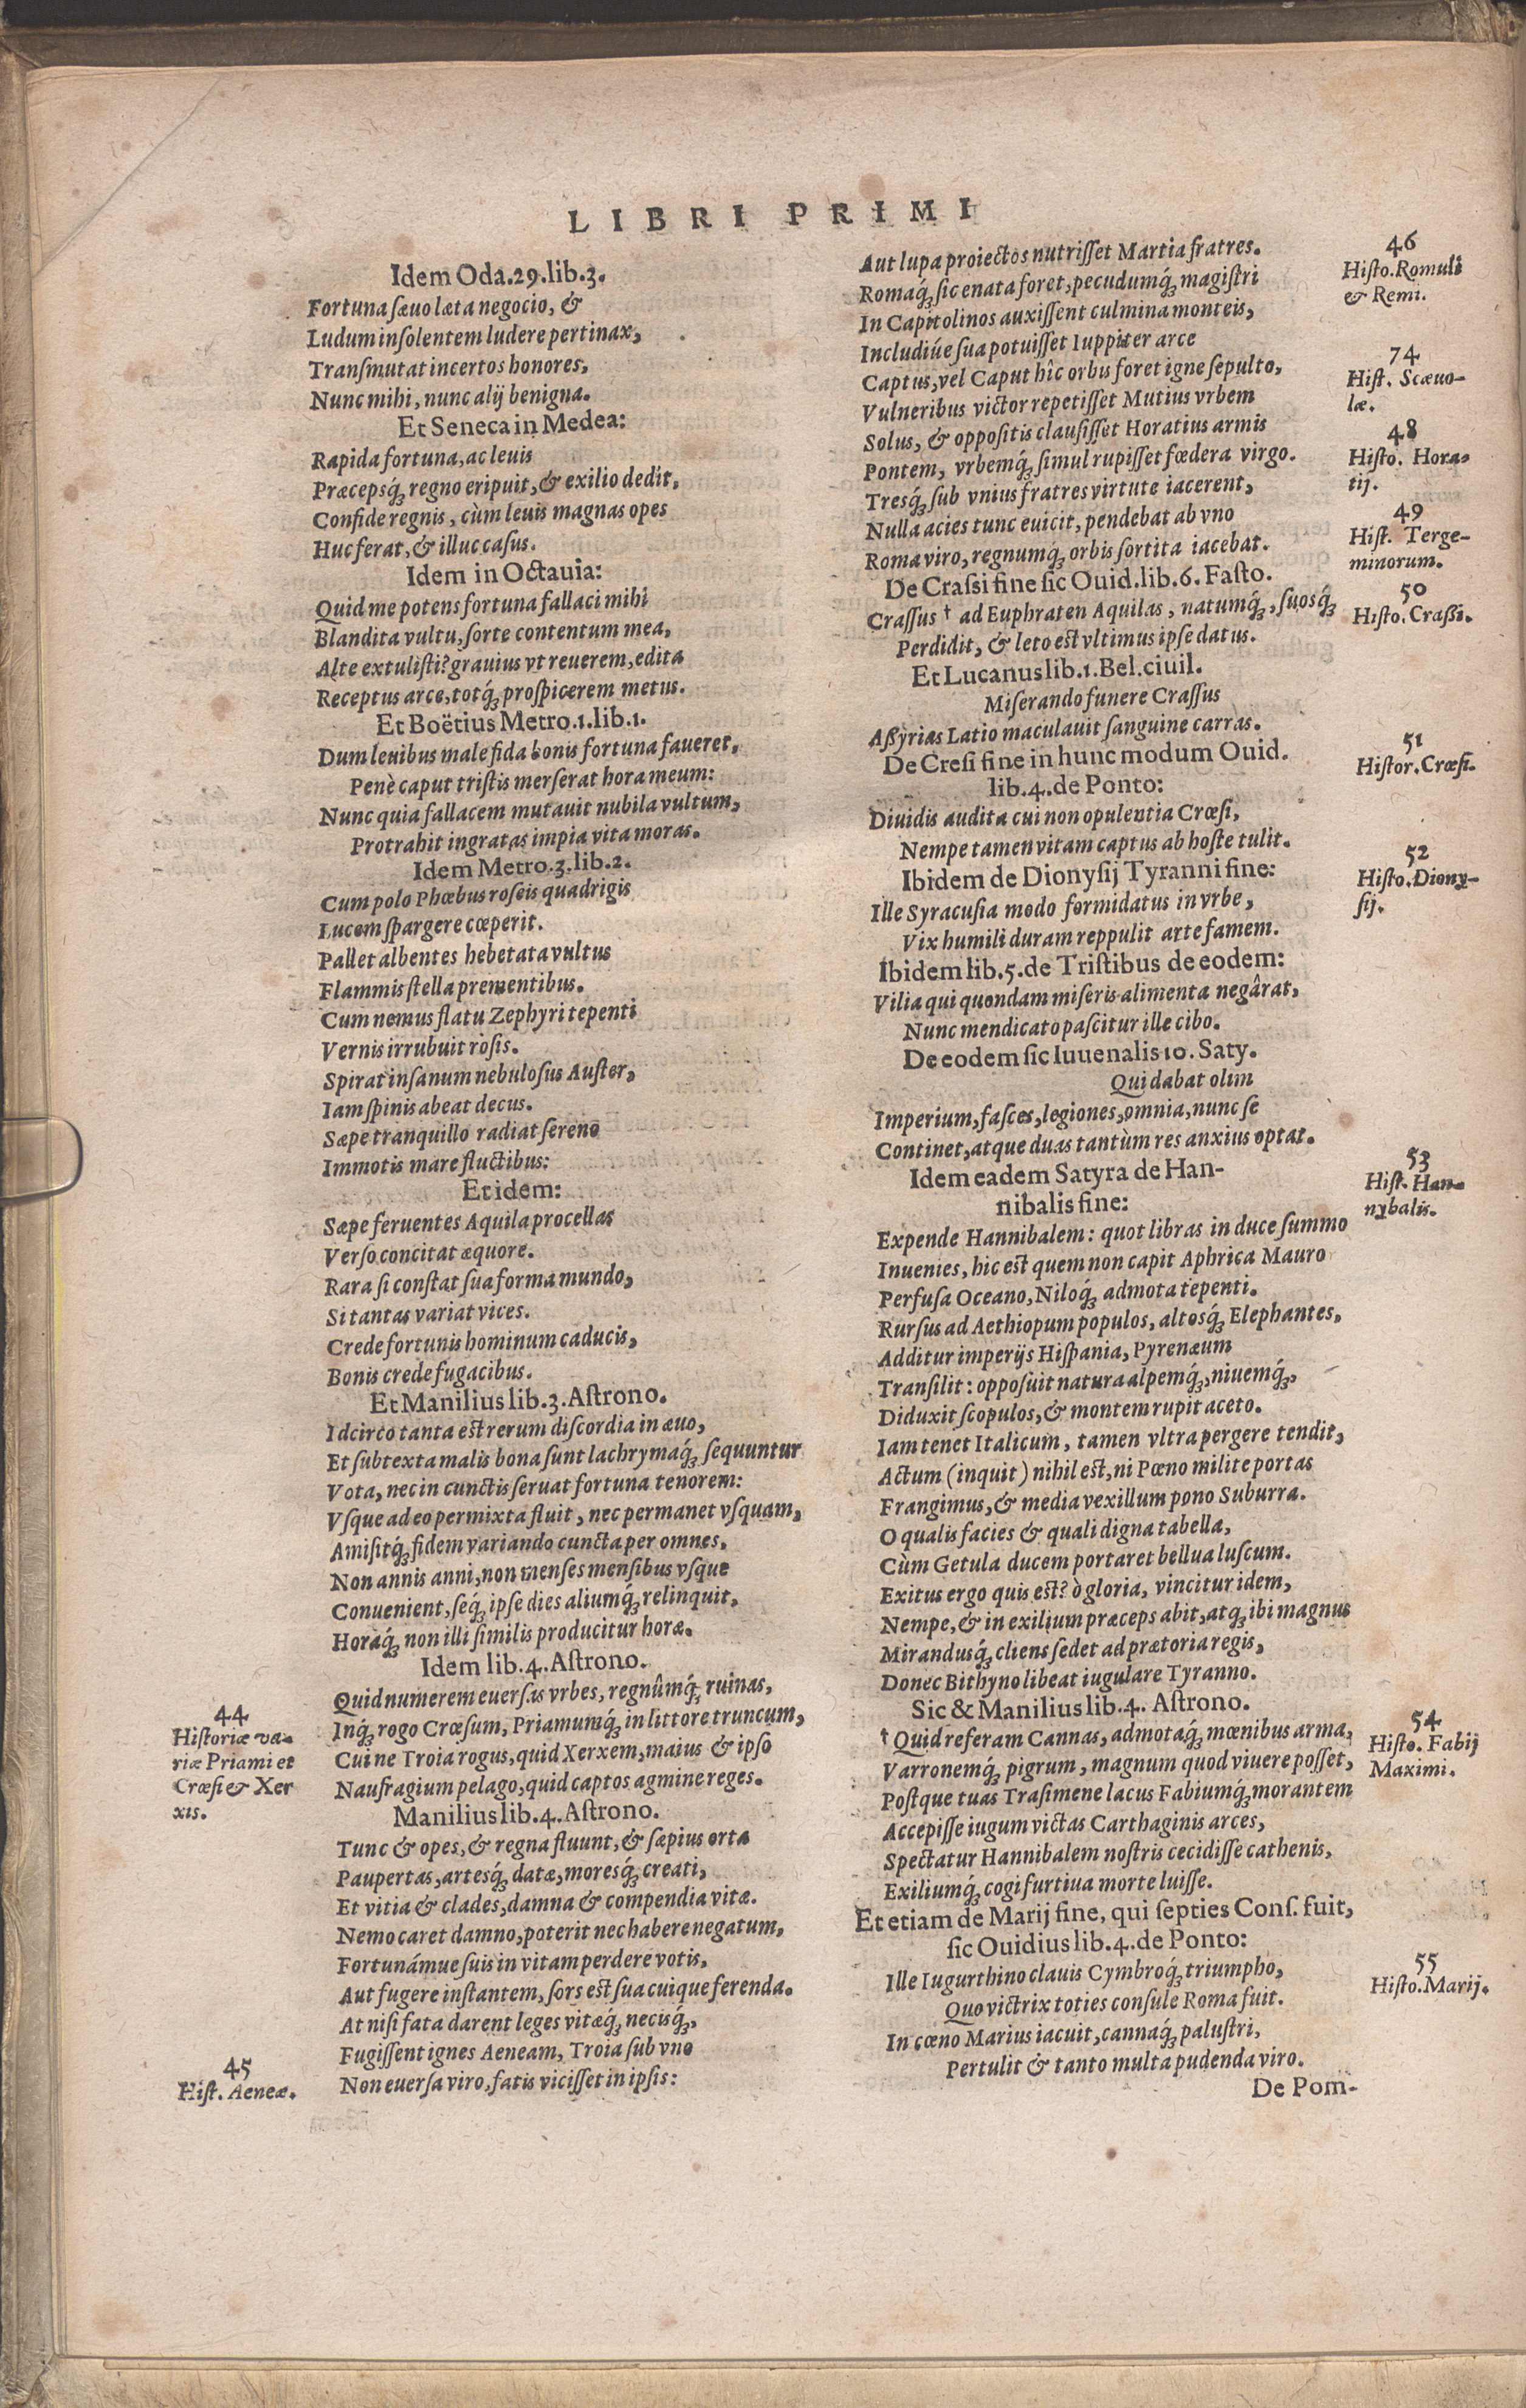 LIBRI PRIMI
Idem Oda.29.lib.3.
Fortuna sæuo læta negocio, &
Ludum insolentem ludere pertinax,
Transmutat incertos honores,
Nunc mihi, nunc alij benigna.
Et Seneca in Medea:
Rapida fortuna, ac leuis
Præcepsq́ꝫ regno eripuit, & exilio dedit,
Confide regnis, cùm leuis magnas opes
Huc ferat, & illuc casus.
Idem in Octauia:
Quid me potens fortuna fallaci mihi
Blandita vultu, sorte contentum mea,
Alte extulisti? grauius vt reuerem, edita
Receptus arce, totq́ꝫ prospicerem metus.
Et Boëtius Metro.1.lib.1.
Dum leuibus male fida bonis fortuna faueret,
Penè caput tristis merserat hora meum:
Nunc quia fallacem mutauit nubila vultum,
Protrahit ingratas impia vita moras.
Idem Metro.3.lib.2.
Cum polo Phœbus roseis quadrigis
Lucem spargere cœperit.
Pallet albentes hebetata vultus
Flammis stella prementibus.
Cum nemus flatu Zephyri tepenti
Vernis irrubuit rosis.
Spirat insanum nebulosus Auster,
Iam spinis abeat decus.
Sæpe tranquillo radiat sereno
Immotis mare fluctibus:
Et idem:
Sæpe feruentes Aquila procellas
Verso concitat æquore.
Rara si constat sua forma mundo,
Si tantas variat vices.
Crede fortunis hominum caducis,
Bonis crede fugacibus.
Et Manilius lib.3. Astrono.
Idcirco tanta est rerum discordia in æuo,
Et subtexta malis bona sunt lachrymaq́ꝫ sequuntur
Vota, nec in cunctis seruat fortuna tenorem:
Vsque adeo permixta fluit, nec permanet vsquam,
Amisitq́ꝫ fidem variando cuncta per omnes.
Non annis anni, non menses mensibus vsque
Conuenient, seq́ꝫ ipse dies aliumq́ꝫ relinquit,
Horaq́ꝫ non illi similis producitur horæ.
Idem lib.4. Astrono.
Quid numerem euersas vrbes, regnûmq́ꝫ ruinas,
Inq́ꝫ rogo Crœsum, Priamumq́ꝫ in littore truncum,
Cui ne Troia rogus, quid Xerxem, maius & ipso
Naufragium pelago, quid captos agmine reges.
44
Historiæ va-
riæ Priami et
Crœsi & Xer
xis.
Manilius lib.4. Astrono.
Tunc & opes, & regna fluunt, & sæpius orta
Paupertas, artesq́ꝫ datæ, moresq́ꝫ creati,
Et vitia & clades, damna & compendia vitæ.
Nemo caret damno, poterit nec habere negatum,
Fortunámue suis invitam perdere votis,
Aut fugere instantem, sors est sua cuique ferenda.
At nisi fata darent leges vitæq́ꝫ necisq́ꝫ,
Fugissent ignes Aeneam, Troia sub vno
Non euersa viro, fatis vicisset in ipsis:
45
Hist. Aeneæ.
Aut lupa proiectos nutrisset Martia fratres.
Romaq́ꝫ sic enata foret, pecudumq́ꝫ magistri
In Capitolinos auxissent culmina monteis,
Includiúe sua potuisset Iuppiter arce
Captus, vel Caput hîc orbis foret igne sepulto,
Vulneribus victor repetisset Mutius vrbem
Solus, & oppositis clausisset Horatius armis
Pontem, vrbemq́ꝫ simul rupisset fœdera virgo.
Tresq́ꝫ sub vnius fratres virtute iacerent,
Nulla acies tunc euicit, pendebat ab vno
Roma viro, regnumq́ꝫ orbis sortita iacebat.
46
Histo. Romuli
& Remi.
74
Hist. Scæuo-
læ.
48
Histo. Hora-
tij.
49
Hist. Terge-
minorum.
De Crassi fine sic Ouid.lib.6. Fasto.
Crassus † ad Euphraten Aquilas, natumq́ꝫ, suosq́ꝫ
Perdidit, & leto est vltimus ipse datus.
50
Histo. Crassi.
Et Lucanus lib.1. Bel. ciuil.
Miserando funere Crassus
Assyrias Latio maculauit sanguine carras.
De Cresi fine in hunc modum Ouid.
lib.4.de Ponto:
Diuidis audita cui non opulentia Crœsi,
Nempe tamen vitam captus ab hoste tulit.
51
Histor. Crœsi.
Ibidem de Dionysij Tyranni fine:
Ille Syracusia modo formidatus in vrbe,
Vix humili duram reppulit arte famem.
52
Histo. Diony-
sij.
Ibidem lib.5.de Tristibus de eodem:
Vilia qui quondam miseris alimenta negârat,
Nunc mendicato pascitur ille cibo.
De eodem sic Iuuenalis 10. Saty.
Qui dabat olim
Imperium, fasces, legiones, omnia, nunc se
Continet, atque duas tantùm res anxius optat.
Idem eadem Satyra de Han-
nibalis fine:
Expende Hannibalem: quot libras in duce summo
Inuenies, hic est quem non capit Aphrica Mauro
Perfusa Oceano, Niloq́ꝫ admota tepenti.
Rursus ad Aethiopum populos, altosq́ꝫ Elephantes,
Additur imperijs Hispania, Pyrenæum
Transilit: opposuit natura alpemq́ꝫ, niuemq́ꝫ,
Diduxit scopulos, & montem rupit aceto.
Iam tenet Italicum, tamen vltra pergere tendit,
Actum (inquit) nihil est, ni Pœno milite portas
Frangimus, & media vexillum pono Suburra.
O qualis facies & quali digna tabella,
Cùm Getula ducem portaret bellua luscum.
Exitus ergo quis est? ò gloria, vincitur idem,
Nempe, & in exilium præceps abit, atq́ꝫ ibi magnus
Mirandusq́ꝫ cliens sedet ad prætoria regis,
Donec Bithyno libeat iugulare Tyranno.
53
Hist. Han-
nybalis.
Sic & Manilius lib.4. Astrono.
† Quid referam Cannas, admotaq́ꝫ mœnibus arma,
Varronemq́ꝫ pigrum, magnum quod viuere posset,
Postque tuas Trasimene lacus Fabiumq́ꝫ morantem
Accepisse iugum victas Carthaginis arces,
Spectatur Hannibalem nostris cecidisse cathenis,
Exiliumq́ꝫ cogi furtiua morte luisse.
54
Histo. Fabij
Maximi.
Et etiam de Marij fine, qui septies Cons. fuit,
sic Ouidius lib.4.de Ponto:
Ille Iugurthino clauis Cymbroq́ꝫ triumpho,
Quo victrix toties consule Roma fuit.
In cœno Marius iacuit, cannaq́ꝫ palustri,
Pertulit & tanto multa pudenda viro.
55
Histo. Marij.
De Pom-